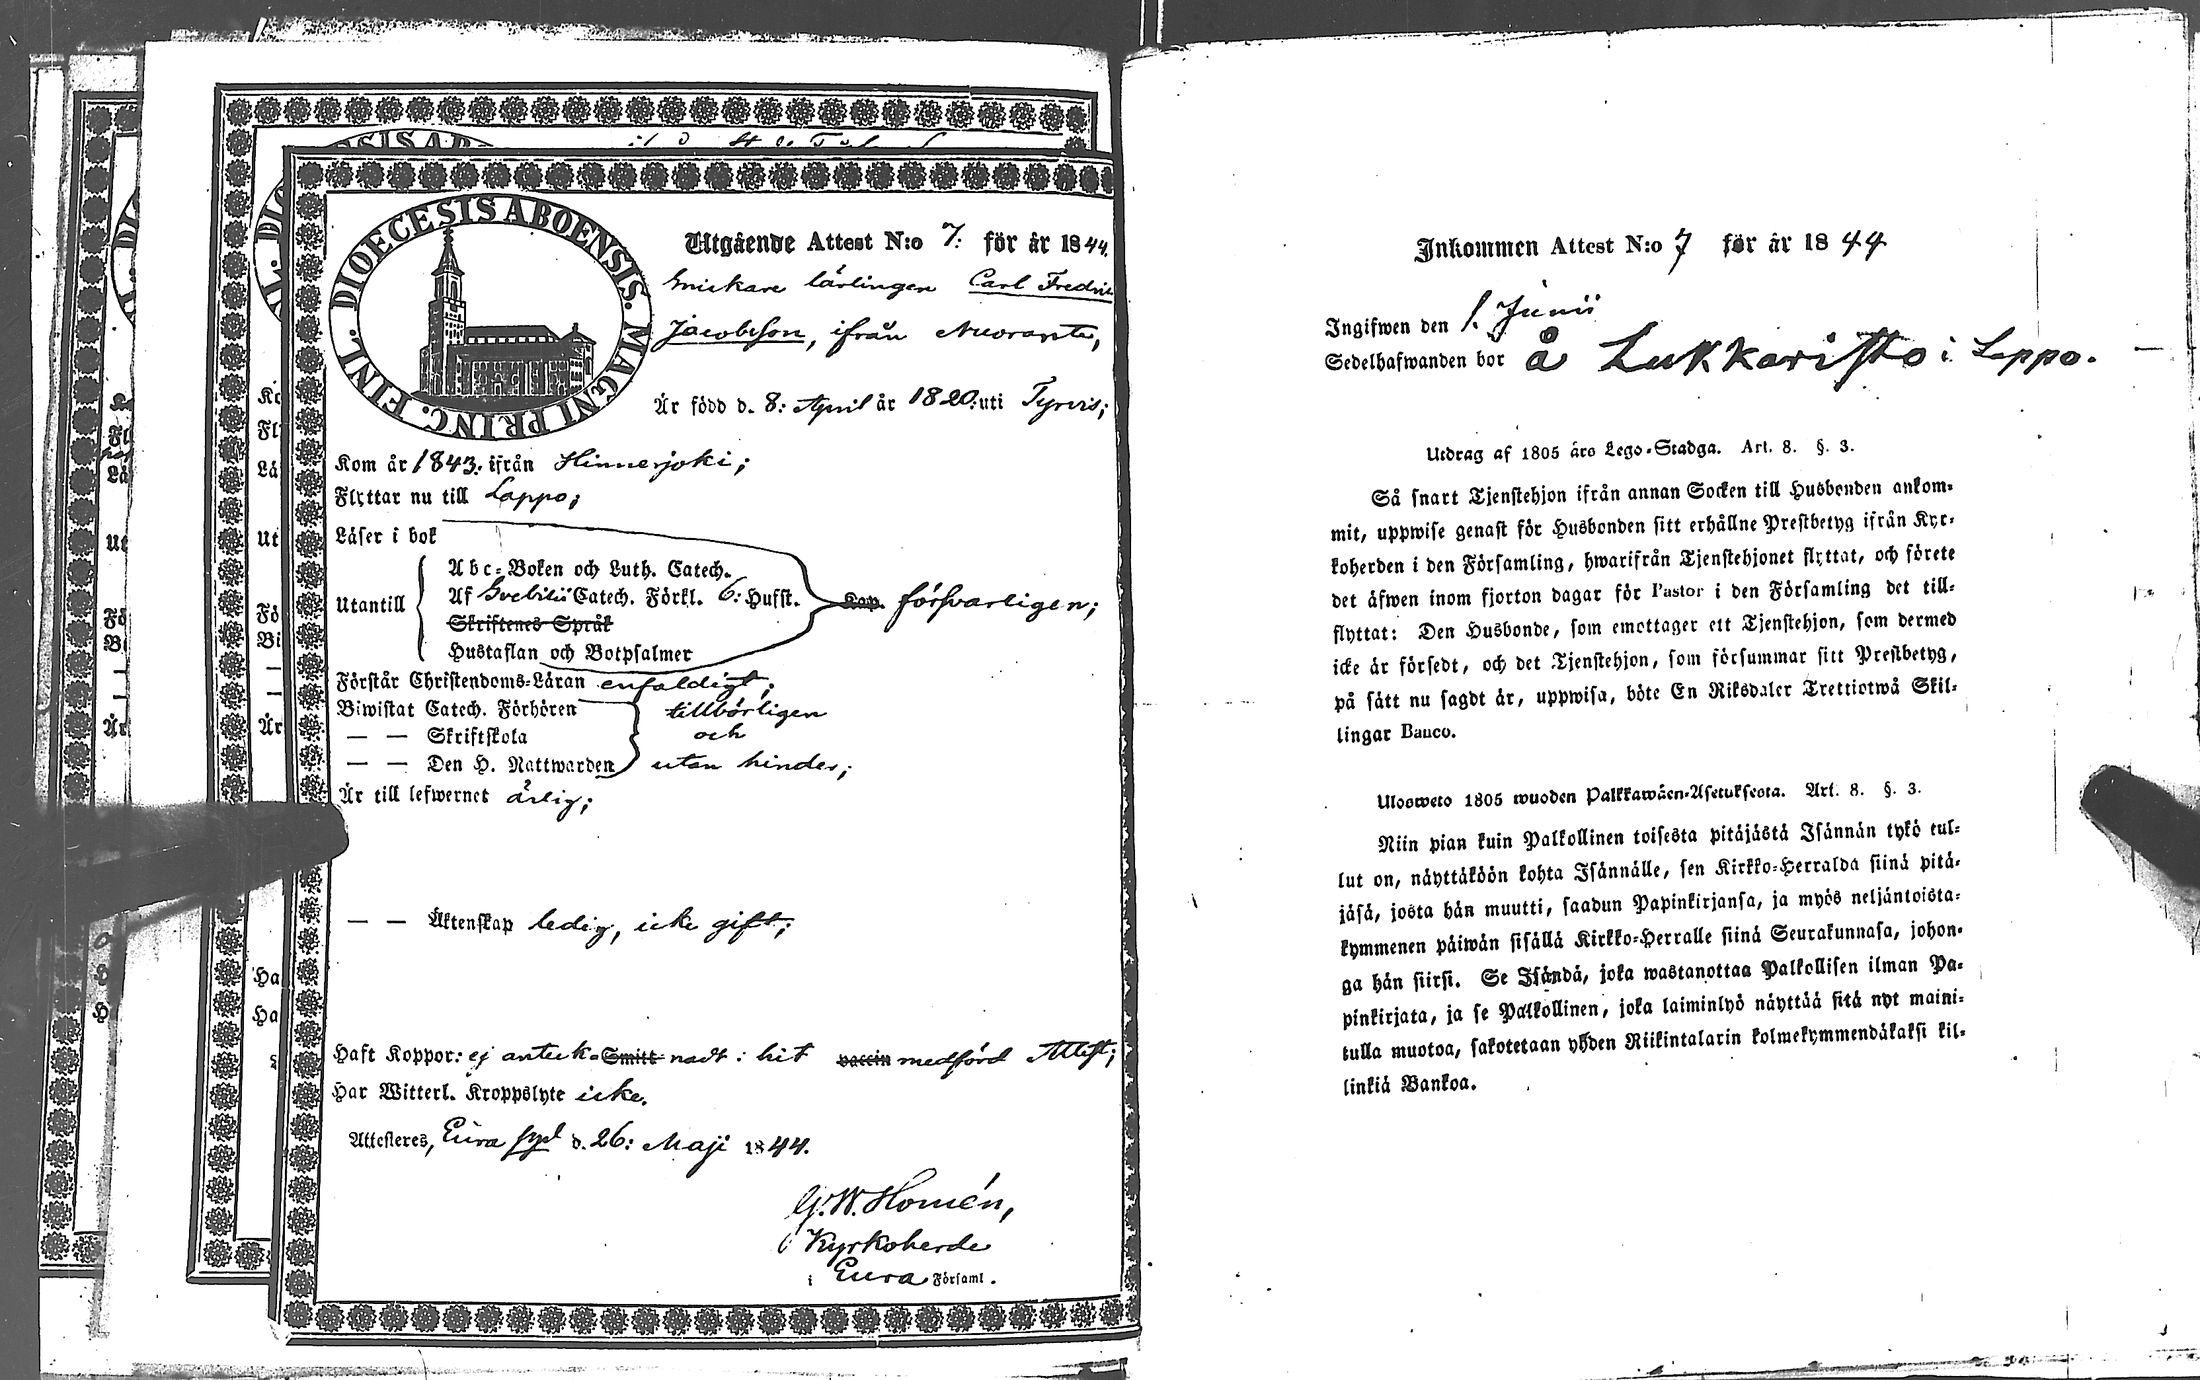 DIOECESIS ABOENSIS. MAGNI PRINC. FINL.
Utgående Attest N:o 7: för år 1844.
Snickare lärlingen Carl Fredric
Jacobsson, ifrån Nuoranta,
Är född d. 8: April år 1820: uti Tyrvis;
Kom år 1843. ifrån Hinnerjoki;
Flyttar nu till Lappo;
Läser i bok
Utantill
Abc-Boken och Luth. Catech.
Af Svebilii Catech. Förkl. 6: Hufst. Kap. försvarligen;
Skriftenes Språk
Hustaflan och Botpsalmer
Förstår Christendoms-Läran enfaldigt;
Biwistat Catech. Förhören tillbörligen
— — Skriftskola och
— — Den H. Nattwarden utan hinder;
Är till lefwernet ärlig;
— — Äktenskap ledig, icke gift;
Haft Koppor: ej anteck- Smitt nadt i hit vaccin medförd Attest;
Har Witterl. Kroppslyte icke.
Attesteres, Eura d. 26: Maji 1844.
G. W. Homén,
Kyrkoherde
i Eura Församl.
Inkommen Attest N:o 7 för år 1844
Ingifwen den 1. Junii
Sedelhafwanden bor å Lukkaristo i Lappo.
Utdrag af 1805 års Lego-Stadga. Art. 8. §. 3.
Så snart Tjenstehjon ifrån annan Socken till Husbonden ankom-
mit, uppwise genast för Husbonden sitt erhållne Prestbetyg ifrån Kyr-
koherden i den Församling, hwarifrån Tjenstehjonet flyttat, och förete
det äfwen inom fjorton dagar för Pastor i den Församling det till-
flyttat: Den Husbonde, som emottager ett Tjenstehjon, som dermed
icke är försedt, och det Tjenstehjon, som försummar sitt Prestbetyg,
på sätt nu sagdt är, uppwisa, böte En Riksdaler Trettiotwå Skil-
lingar Banco.
Ulosweto 1805 wuoden Palkkawäen-Asetuksesta. Art. 8. §. 3.
Niin pian kuin Palkollinen toisesta pitäjästä Isännän tykö tul-
lut on, näyttäköön kohta Isännälle, sen Kirkko-Herralda siinä pitä-
jäsä, josta hän muutti, saadun Papinkirjansa, ja myös neljäntoista-
kymmenen päiwän sisällä Kirkko-Herralle siinä Seurakunnasa, johon-
ga hän siirsi. Se Isändä, joka wastanottaa Palkollisen ilman Pa-
pinkirjata, ja se Palkollinen, joka laiminlyö näyttää sitä nyt maini-
tulla muotoa, sakotetaan yhden Riikintalarin kolmekymmendäkaksi kil-
linkiä Bankoa.